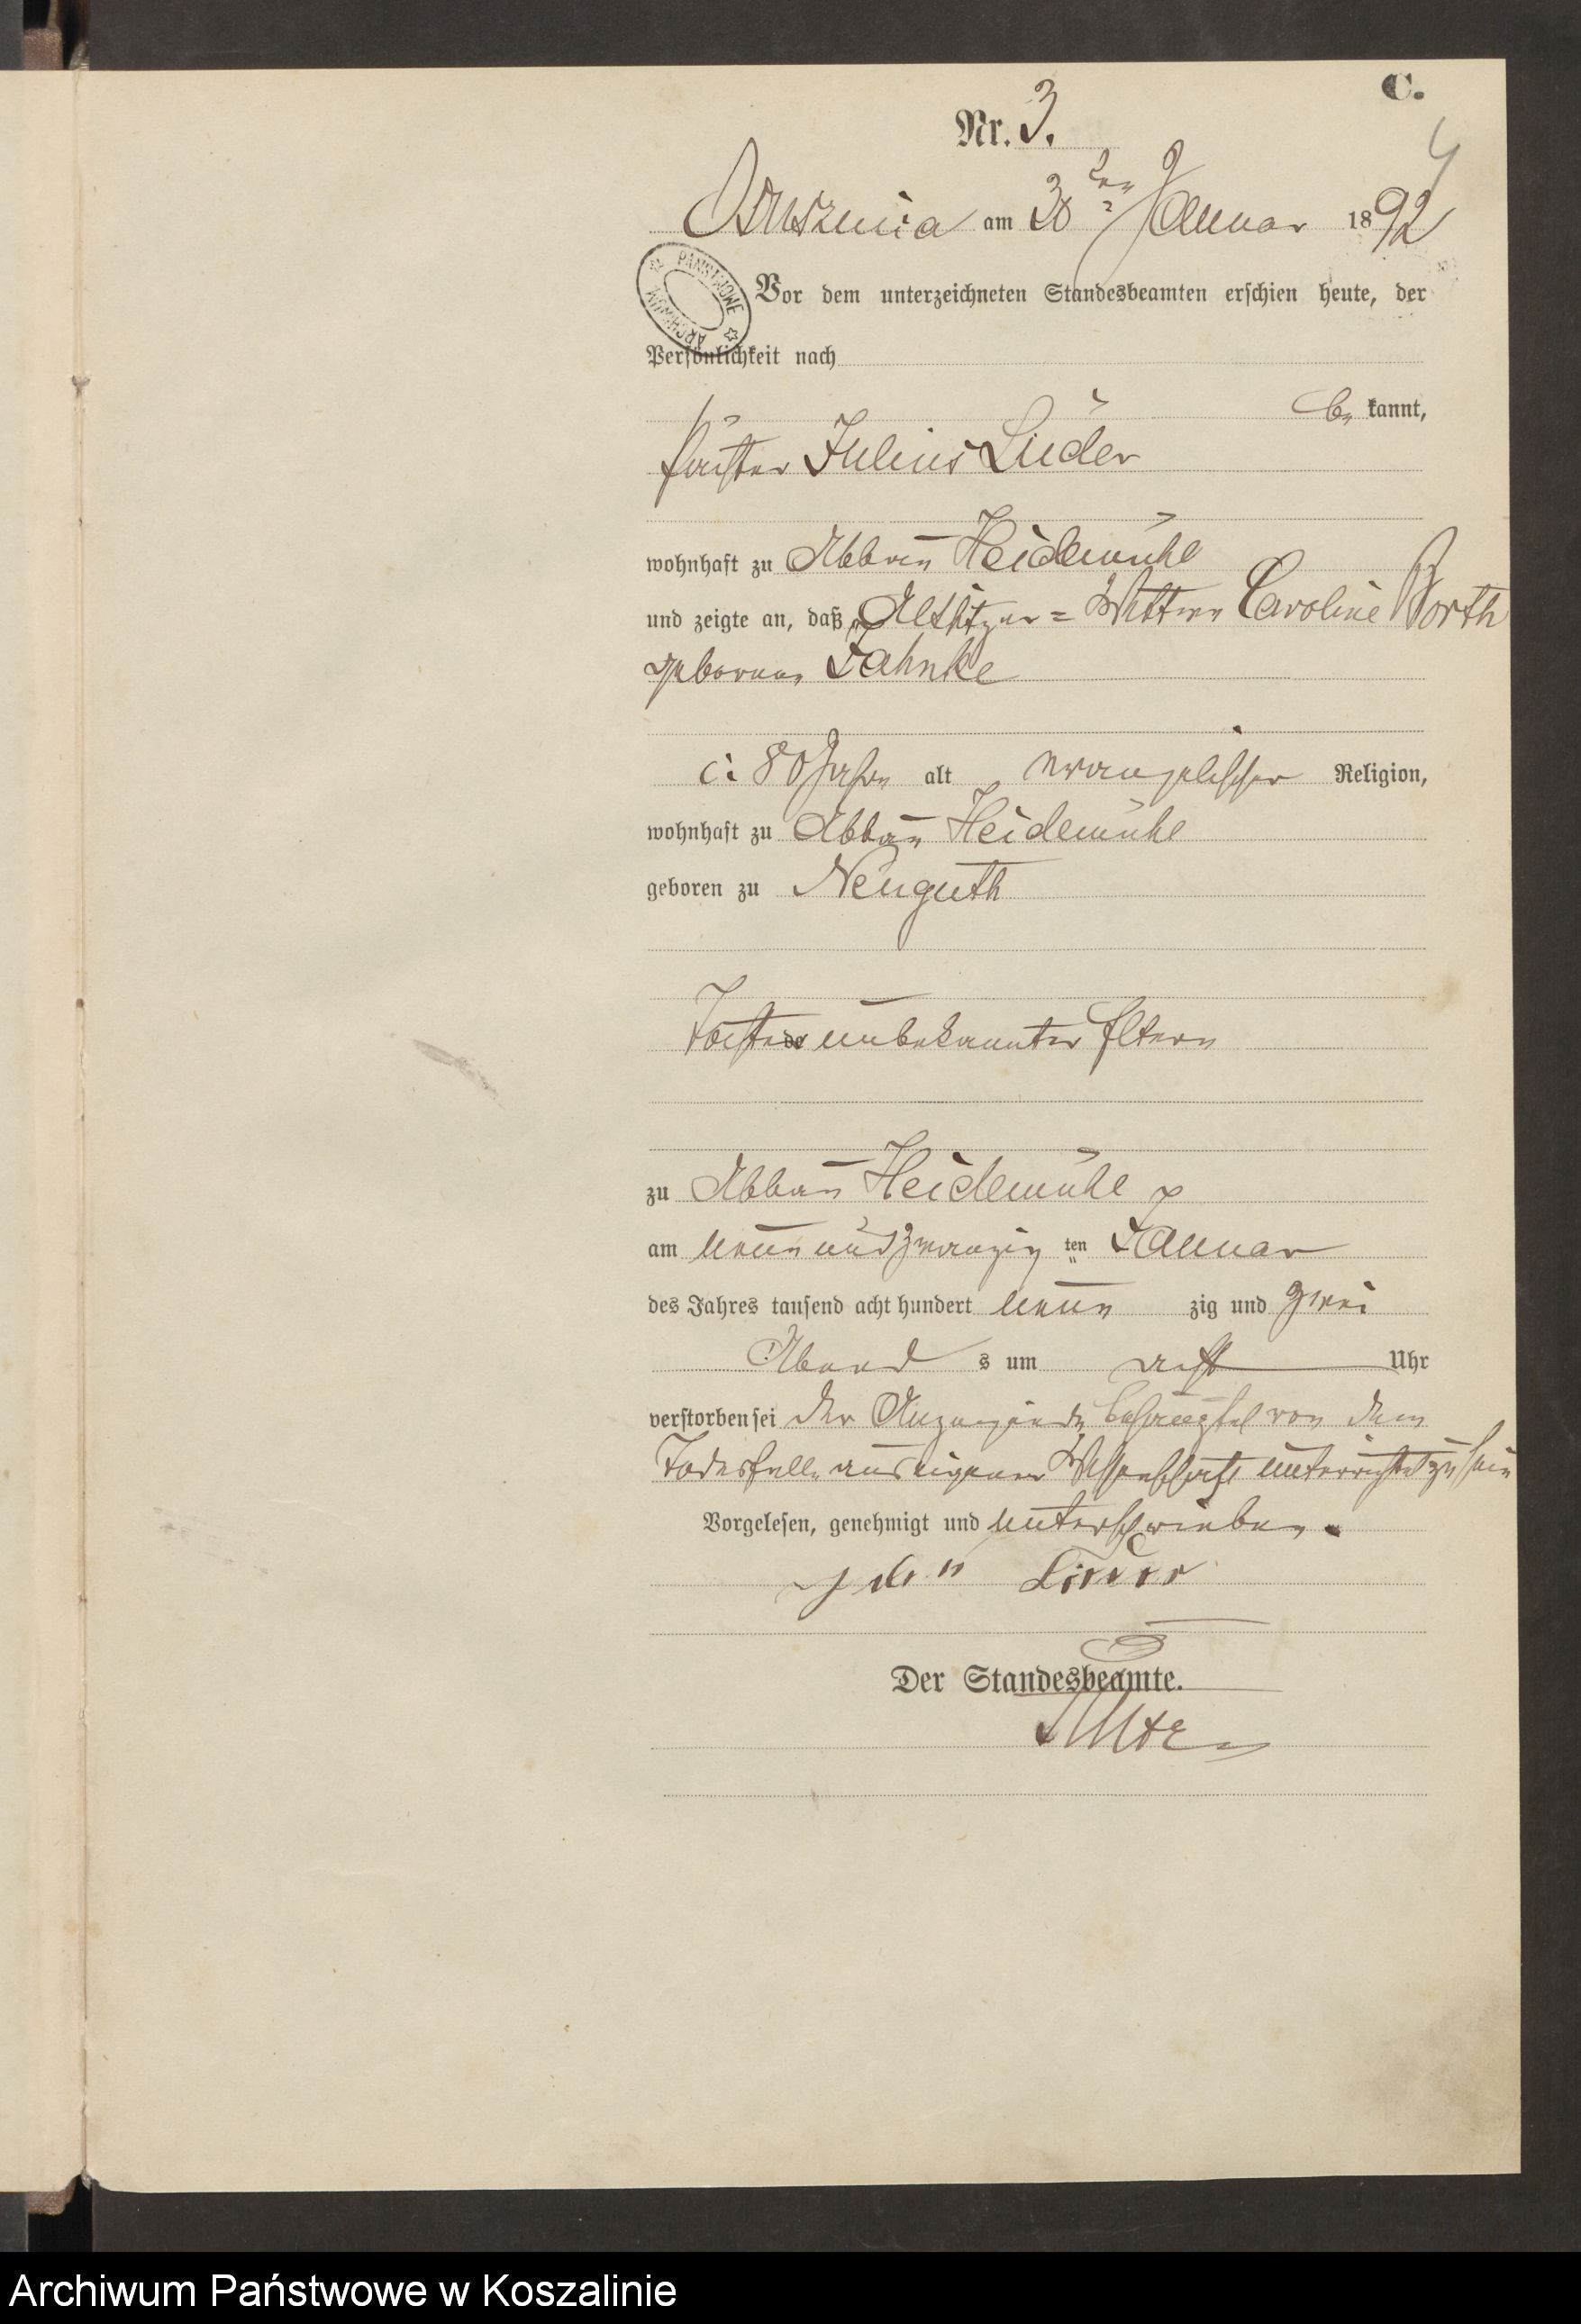 C.
Nr. 3.
4
Osusznica am 30ten Januar 1892
PAŃSTWOWE ARCHIWUM
Vor dem unterzeichneten Standesbeamten erschien heute, der
Persönlichkeit nach
be kannt,
Julius Lüder
wohnhaft zu Abbau Heidemühl
und zeigte an, daß Altsitzer= Wittwe Caroline Borth
geborene Jahnke
c: 80 Jahre alt evangelischer Religion,
wohnhaft zu Abbau Heidemühl
geboren zu Neuguth
Tochter unbekannter Eltern
zu Abbau Heidemühl
am neun und zwanzig ten Januar
des Jahres tausend acht hundert neun zig und zwei
Abend s um acht Uhr
verstorben sei der Anzeigende von dem
Todesfalle aus eigener Wissenschaft unterrichtet zu sein
Vorgelesen, genehmigt und unterschrieben.
Lüder
Der Standesbeamte.
Archiwum Państwowe w Koszalinie